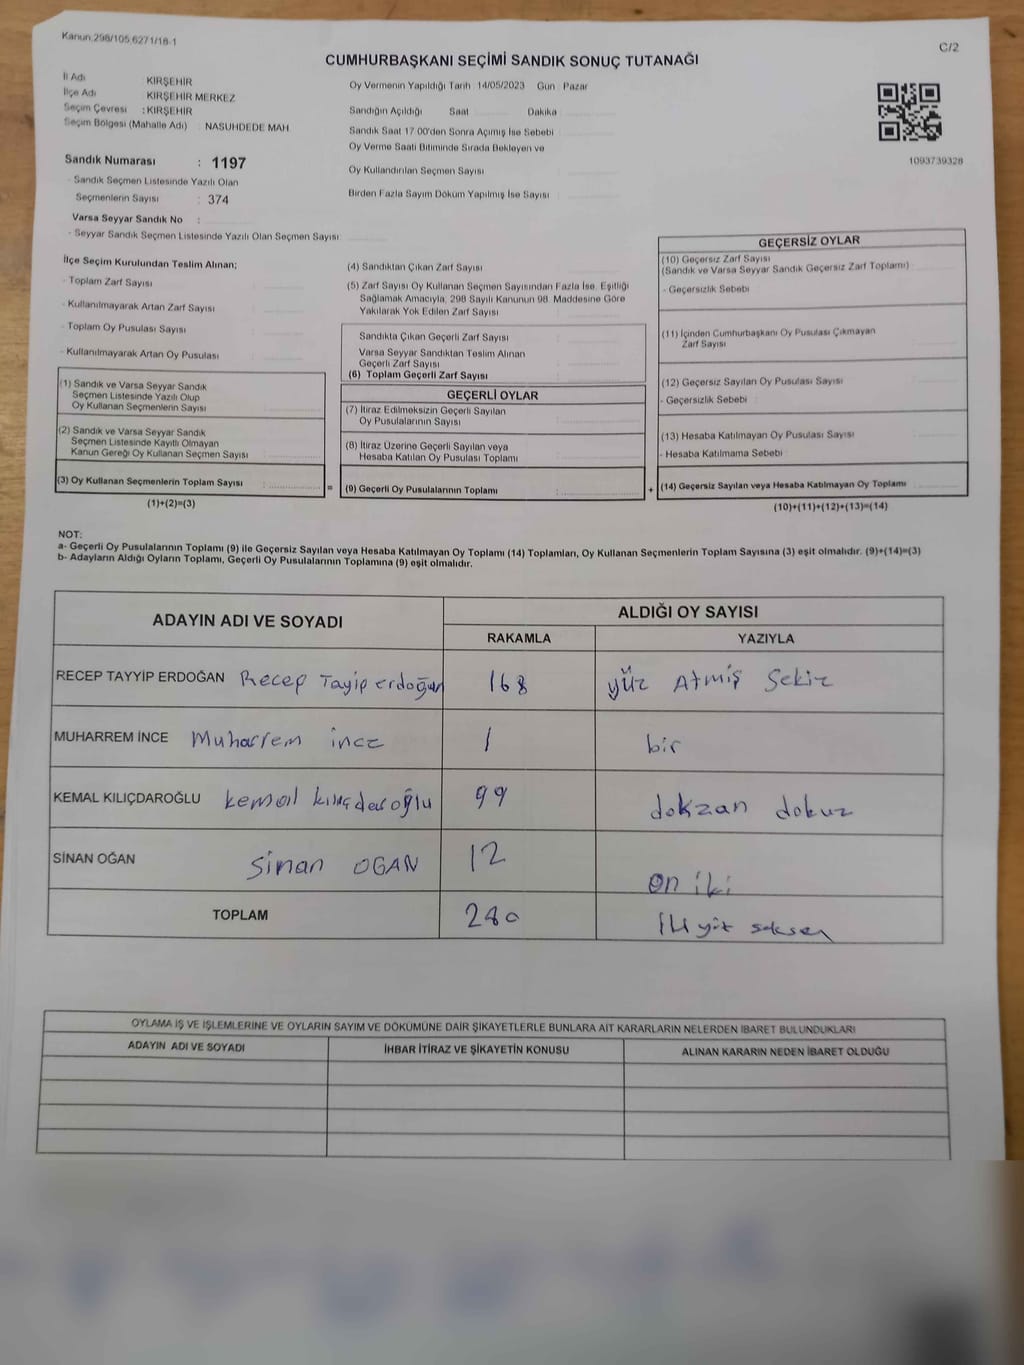 Kanun.298/105,6271/18-1
C/2
CUMHURBAŞKANI SEÇİMİ SANDIK SONUÇ TUTANAĞI
İl Adı KIRŞEHİR
İlçe Adı KIRŞEHİR MERKEZ
Seçim Çevresi : KIRŞEHİR
Seçim Bölgesi (Mahalle Adı) : NASUHDEDE MAH
Sandık Numarası : 1197
- Sandık Seçmen Listesinde Yazılı Olan
Seçmenlerin Sayısı : 374
Varsa Seyyar Sandık No :
- Seyyar Sandık Seçmen Listesinde Yazılı Olan Seçmen Sayısı:
Oy Vermenin Yapıldığı Tarih 14/05/2023 Gün Pazar
Sandığın Açıldığı Saat Dakika
Sandık Saat 17 00'den Sonra Açımış İse Sebebi
Oy Verme Saati Bitiminde Sırada Bekleyen ve
Oy Kullandırılan Seçmen Sayısı
Birden Fazla Sayım Döküm Yapılmış İse Sayısı
1093739328
İlçe Seçim Kurulundan Teslim Alınan;
- Toplam Zarf Sayısı
- Kullanılmayarak Artan Zarf Sayısı
- Toplam Oy Pusulası Sayısı
- Kullanılmayarak Artan Oy Pusulası
(1) Sandık ve Varsa Seyyar Sandık
Seçmen Listesinde Yazılı Olup
Oy Kullanan Seçmenlerin Sayısı
(2) Sandık ve Varsa Seyyar Sandık
Seçmen Listesinde Kayıtlı Olmayan
Kanun Gereği Oy Kullanan Seçmen Sayısı
(3) Oy Kullanan Seçmenlerin Toplam Sayısı :
(1)+(2)=(3)
(4) Sandıktan Çıkan Zarf Sayısı
(5) Zarf Sayısı Oy Kullanan Seçmen Sayısından Fazla İse, Eşitliği
Sağlamak Amacıyla, 298 Sayılı Kanunun 98. Maddesine Göre
Yakılarak Yok Edilen Zarf Sayısı
Sandıkta Çıkan Geçerli Zarf Sayısı
Varsa Seyyar Sandıktan Teslim Alınan
Geçerli Zarf Sayısı
(6) Toplam Geçerli Zarf Sayısı
GEÇERLİ OYLAR
(7) İtiraz Edilmeksizin Geçerli Sayılan
Oy Pusulalarının Sayısı
(8) İtiraz Üzerine Geçerli Sayılan veya
Hesaba Katılan Oy Pusulası Toplamı
= (9) Geçerli Oy Pusulalarının Toplamı :
GEÇERSİZ OYLAR
(10) Geçersiz Zarf Sayısı
(Sandık ve Varsa Seyyar Sandık Geçersiz Zarf Toplamı)
- Geçersizlik Sebebi
(11) İçinden Cumhurbaşkanı Oy Pusulası Çıkmayan
Zarf Sayısı
(12) Geçersiz Sayılan Oy Pusulası Sayısı
- Geçersizlik Sebebi
(13) Hesaba Katılmayan Oy Pusulası Sayısı
- Hesaba Katılmama Sebebi
+ (14) Geçersiz Sayılan veya Hesaba Katılmayan Oy Toplamı
(10)+(11)+(12)+(13)=(14)
NOT:
a- Geçerli Oy Pusulalarının Toplamı (9) ile Geçersiz Sayılan veya Hesaba Katılmayan Oy Toplamı (14) Toplamları, Oy Kullanan Seçmenlerin Toplam Sayısına (3) eşit olmalıdır. (9)+(14)=(3)
b- Adayların Aldığı Oyların Toplamı, Geçerli Oy Pusulalarının Toplamına (9) eşit olmalıdır.
ADAYIN ADI VE SOYADI ALDIĞI OY SAYISI
RAKAMLA YAZIYLA
RECEP TAYYİP ERDOĞAN Recep Tayip erdoğan 168 yüz Atmiş Sekiz
MUHARREM İNCE Muharrem ince 1 bir
KEMAL KILIÇDAROĞLU kemal kılıçdaroğlu 99 dokzan dokuz
SİNAN OĞAN Sinan OGAN 12 on iki
TOPLAM 280 iki yüz seksen
OYLAMA İŞ VE İŞLEMLERİNE VE OYLARIN SAYIM VE DÖKÜMÜNE DAİR ŞİKAYETLERLE BUNLARA AİT KARARLARIN NELERDEN İBARET BULUNDUKLARI
ADAYIN ADI VE SOYADI İHBAR İTİRAZ VE ŞİKAYETİN KONUSU ALINAN KARARIN NEDEN İBARET OLDUĞU